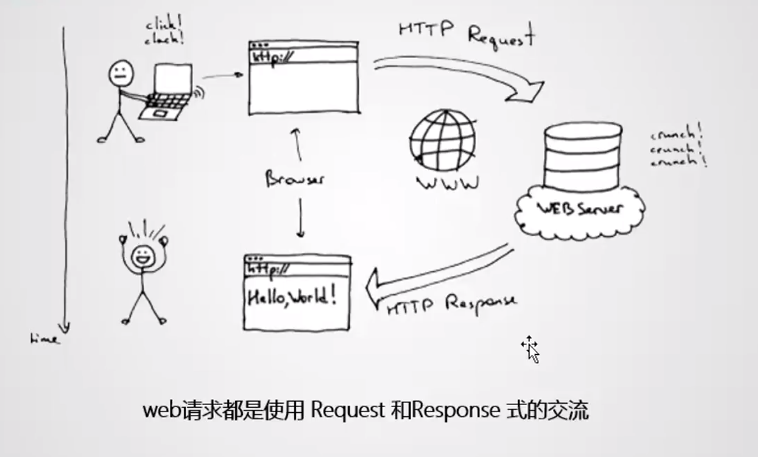 click!
clack!
HTTP Request
http://
crunch!
crunch!
crunch!
Browser
WWW
WEB Server
http://
Hello, World!
HTTP Response
time
web请求都是使用 Request 和Response 式的交流